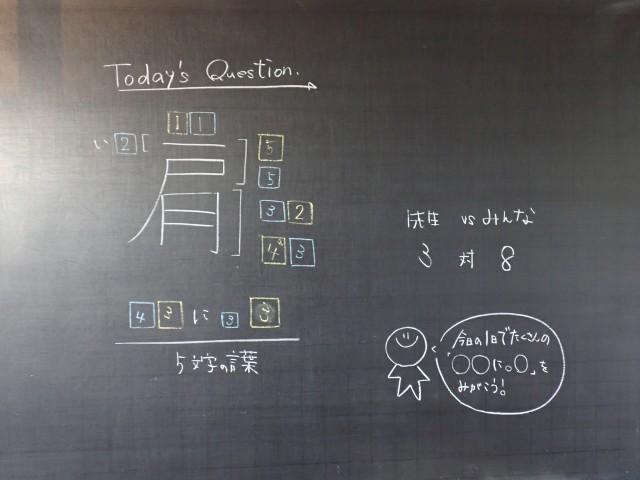 Today's Question.
1 1
い 2 [
肩
5
5
3 2
4 3
4 3 に 3 5
5文字の言葉
先生 vs みんな
3 対 8
今日の1日でたくさんの
「○○に。○」を
みがこう!